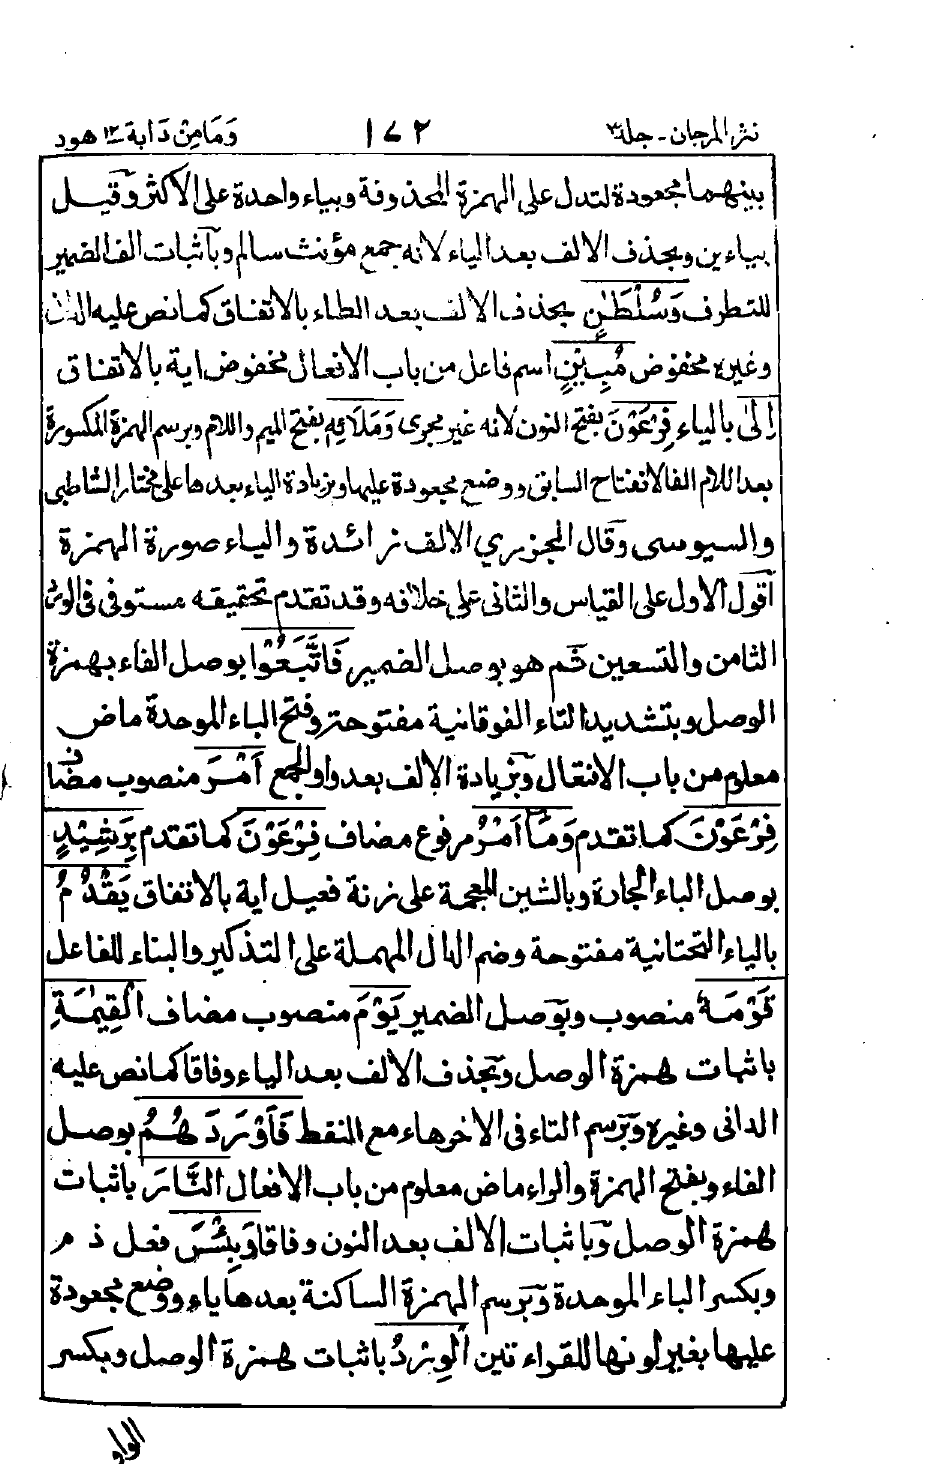 نثر المرجان - جلد ٣ ١٧٢ وَمَا مِنْ دَابة ١٢ هود
بينهما مجعودة لتدل على الهمزة المحذوفة وبياء واحدة على الاكثر وقيل
بياءين وبحذف الالف بعد الياء لانه جمع مؤنث سالم وبآثبات الف الضمير
للتطرف وَسُلْطَٰنٍ بحذف الالف بعد الطاء بالاتفاق كما نص عليه الدانى
وغيره مخفوض مُبِيْنٍ اسم فاعل من باب الافعال مخفوض اية بالاتفاق
اِلىٰ بالياء فِرْعَوْنَ بفتح النون لانه غير مجرى وَمَلَا۟ئِهٖ بفتح الميم واللام وبرسم الهمزة المكسورة
بعد اللام الفا لانفتاح السابق ووضع مجعودة عليها وبزيادة الياء بعدها على مختار الشاطبى
والسيوسى وقال الجزري الالف زائدة والياء صورة الهمزة
آقول الاول على القياس والثانى على خلافه وقد تقدم تحقيقه مستوفى فى الورق
الثامن والتسعين ثم هو بوصل الضمير فَاتَّبَعُوْا بوصل الفاء بهمزة
الوصل وبتشديد التاء الفوقانية مفتوحة وفتح الباء الموحدة ماض
معلوم من باب الافتعال وبزيادة الالف بعد واو الجمع اَمْرَ منصوب مضاف
فِرْعَوْنَ كما تقدم وَمَآ اَمْرُ مرفوع مضاف فِرْعَوْنَ كما تقدم بِرَشِيْدٍ
بوصل الباء الجارة وبالشين المعجمة على زنة فعيل اية بالاتفاق يَقْدُمُ
بالياء التحتانية مفتوحة وضم الدال المهملة على التذكير والبناء للفاعل
قَوْمَهٗ منصوب وبوصل الضمير يَوْمَ منصوب مضاف الْقِيٰمَةِ
باثبات همزة الوصل وبحذف الالف بعد الياء وفاقا كما نص عليه
الدانى وغيره وبرسم التاء فى الاخر هاء مع النقط فَاَوْرَدَهُمُ بوصل
الفاء وبفتح الهمزة والراء ماض معلوم من باب الافعال النَّارَ باثبات
همزة الوصل وباثبات الالف بعد النون وفاقا وَبِئْسَ فعل ذم
وبكسر الباء الموحدة وبرسم الهمزة الساكنة بعدها ياء ووضع مجعودة
عليها بغير لونها للقراءتين الْوِرْدُ باثبات همزة الوصل وبكسر
الواو